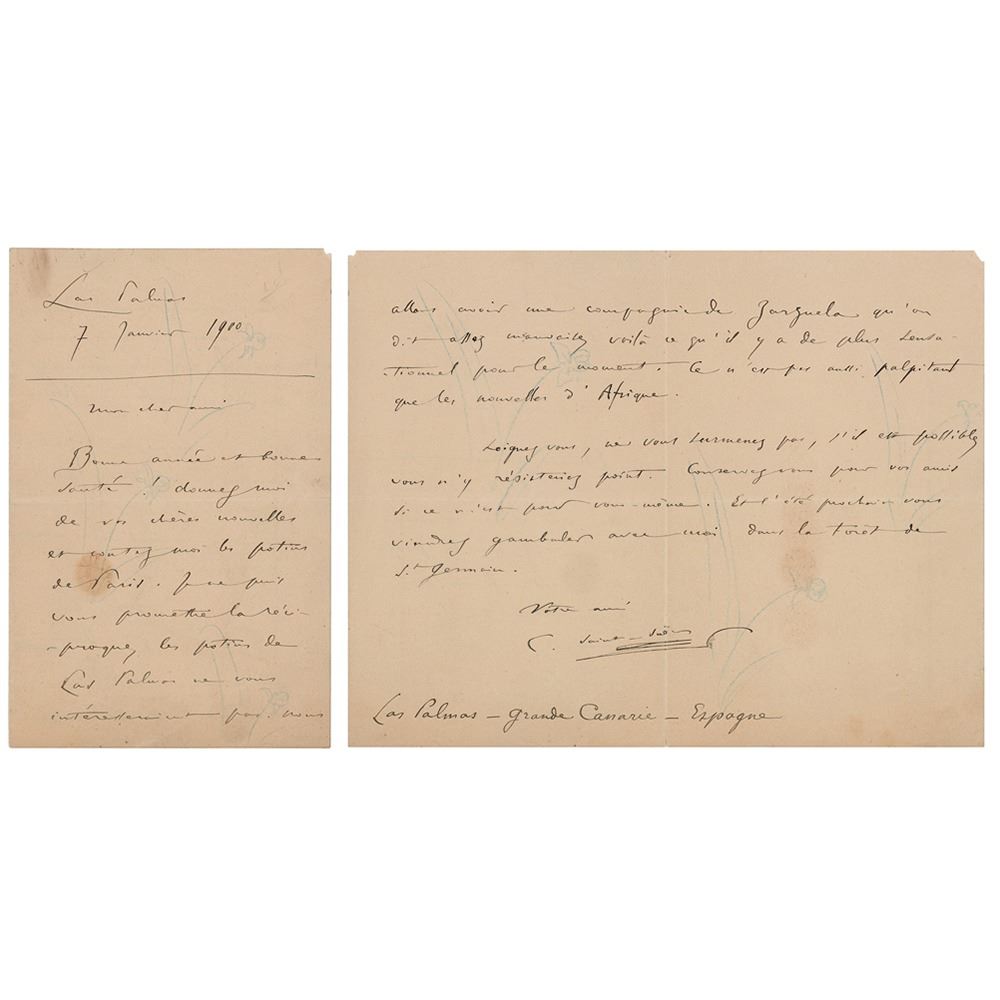 Las Palmas
7 Janvier 1900
Mon cher ami
Bonne année et bonne
santé ! donnez moi
de vos chères nouvelles
et contez moi les potins
de Paris. Je ne puis
vous promettre la réci-
-proque, les potins de
Las Palmas ne vous
intéresseraient pas. nous
allons avoir une compagnie de Zarzuela qu'on
dit assez mauvaise, voilà ce qu'il y a de plus sensa-
-tionnel pour le moment. Ce n'est pas aussi palpitant
que les nouvelles d'Afrique.
Soignez vous, ne vous surmenez pas, s'il est possible,
vous n'y résisteriez point. Conservez vous pour vos amis
si ce n'est pour vous-même. Et l'été prochain vous
viendrez gambader avec moi dans la forêt de
St Germain.
Votre ami
C. Saint-Saëns
Las Palmas – Grande Canarie – Espagne